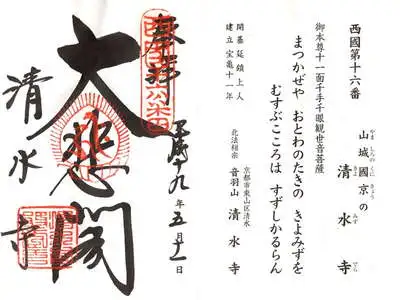 西國第十六番
山城國京の 清水寺
御本尊十一面千手千眼観世音菩薩
まつかぜや おとわのたきの きよみずを
むすぶこころは すずしかるらん
開基延鎮上人
建立宝亀十一年
京都市東山区清水
北法相宗 音羽山 清水寺
奉拝
平成十九年五月十一日
大悲閣
清水寺